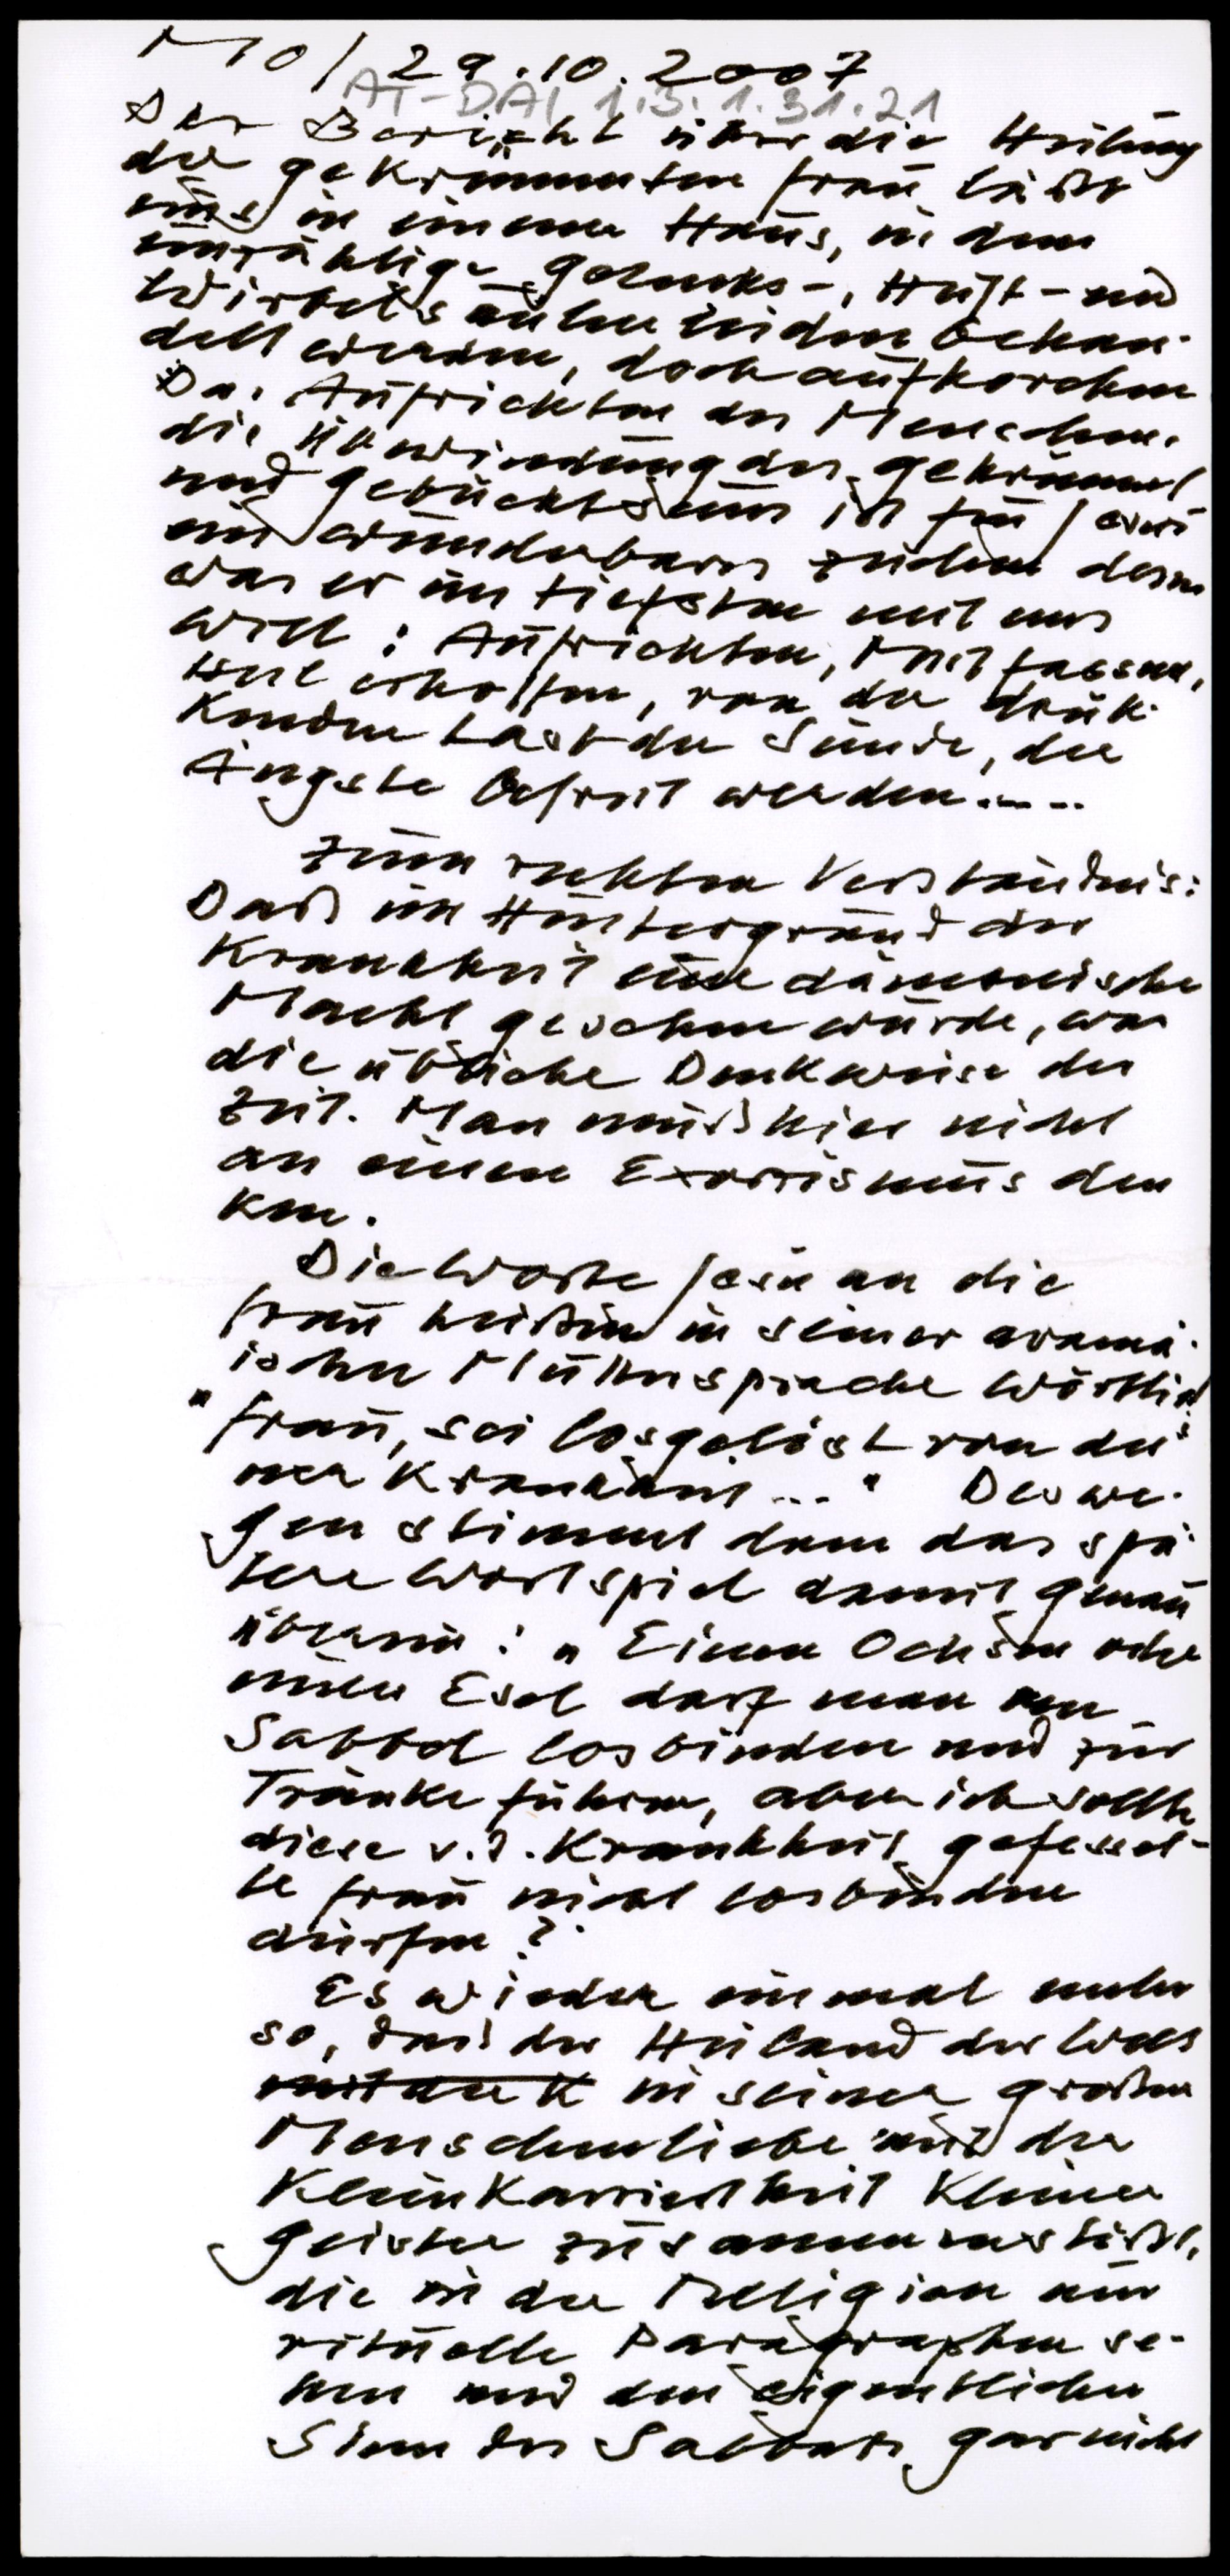 Mo / 29.10.2007
AT-DAI 1.3.1.31.21
Der Bericht über die Heilung
der gekrümmten Frau läßt
uns in einem Haus, in dem
unzählige Gelenks-, Hüft- und
Wirbelsäulenleiden behan-
delt werden, doch aufhorchen
Das Aufrichten des Menschen.
die Überwindung des gekrümmt
und gebücktseins ist für Jesus
ein wunderbares Zeichen dessen
was er im tiefsten mit uns
will: Aufrichten, Mut fassen,
Heil erhoffen, von der drük-
kenden Last der Sünde, der
Ängste befreit werden.....
Zum rechten Verständnis:
Daß im Hintergrund der
Krankheit eine dämonische
Macht gesehen wurde, war
die übliche Denkweise der
Zeit. Man muß hier nicht
an einen Exorzismus den
ken.
Die Worte Jesu an die
Frau heißen in seiner aramä-
ischen Muttersprache wörtlich:
"Frau, sei losgelöst von dei-
ner Krankheit..." Deswe-
gen stimmt dann das spä-
tere Wortspiel damit genau
überein: "Einen Ochsen oder
einen Esel darf man am
Sabbat losbinden und zur
Tränke führen, aber ich sollte
diese v. d. Krankheit gefessel-
te Frau nicht losbinden
dürfen?
Es wieder einmal mehr
so, daß der Heiland der Welt
in seiner großen
Menschenliebe mit der
Kleinkariertheit kleiner
Geister zusammenstößt,
die in der Religion nur
rituelle Paragraphen se-
hen und den eigentlichen
Sinn des Sabbats gar nicht